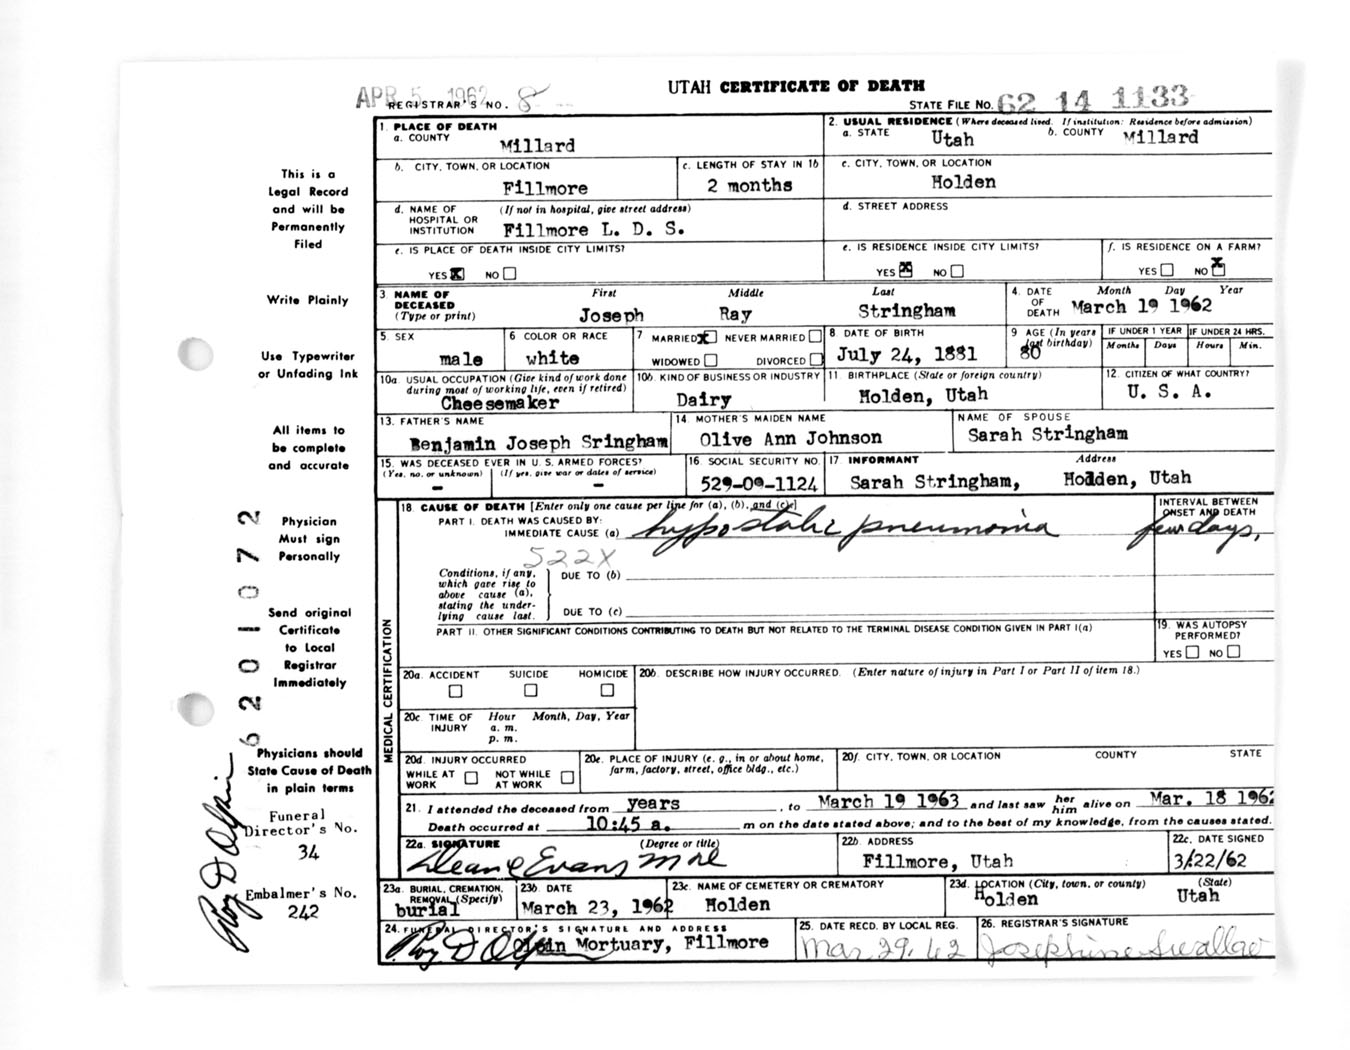 APR 5 1962
UTAH CERTIFICATE OF DEATH
REGISTRAR'S NO. 8
STATE FILE NO. 62 14 1133
1. PLACE OF DEATH
a. COUNTY Millard
2. USUAL RESIDENCE (Where deceased lived. If institution: Residence before admission)
a. STATE Utah b. COUNTY Millard
b. CITY, TOWN, OR LOCATION Fillmore
c. LENGTH OF STAY IN 1b 2 months
c. CITY, TOWN, OR LOCATION Holden
d. NAME OF HOSPITAL OR INSTITUTION (If not in hospital, give street address) Fillmore L. D. S.
d. STREET ADDRESS
e. IS PLACE OF DEATH INSIDE CITY LIMITS?
YES X NO
e. IS RESIDENCE INSIDE CITY LIMITS?
YES X NO
f. IS RESIDENCE ON A FARM?
YES NO X
3. NAME OF DECEASED (Type or print) First Middle Last
Joseph Ray Stringham
4. DATE OF DEATH Month Day Year
March 19 1962
5. SEX male
6 COLOR OR RACE white
7 MARRIED X NEVER MARRIED
WIDOWED DIVORCED
8. DATE OF BIRTH July 24, 1881
9 AGE (In years last birthday) 80
IF UNDER 1 YEAR Months Days
IF UNDER 24 HRS. Hours Min.
10a. USUAL OCCUPATION (Give kind of work done during most of working life, even if retired)
Cheesemaker
10b. KIND OF BUSINESS OR INDUSTRY
Dairy
11. BIRTHPLACE (State or foreign country)
Holden, Utah
12. CITIZEN OF WHAT COUNTRY?
U. S. A.
13. FATHER'S NAME
Benjamin Joseph Sringham
14. MOTHER'S MAIDEN NAME
Olive Ann Johnson
NAME OF SPOUSE
Sarah Stringham
15. WAS DECEASED EVER IN U. S. ARMED FORCES?
(Yes, no. or unknown) (If yes, give war or dates of service)
- -
16. SOCIAL SECURITY NO.
529-09-1124
17 INFORMANT Address
Sarah Stringham, Holden, Utah
MEDICAL CERTIFICATION
18. CAUSE OF DEATH [Enter only one cause per line for (a), (b), and (c)]
PART I. DEATH WAS CAUSED BY:
IMMEDIATE CAUSE (a) hypostatic pneumonia
INTERVAL BETWEEN ONSET AND DEATH
few days,
522X
Conditions, if any, which gave rise to above cause (a), stating the underlying cause last.
DUE TO (b)
DUE TO (c)
PART II. OTHER SIGNIFICANT CONDITIONS CONTRIBUTING TO DEATH BUT NOT RELATED TO THE TERMINAL DISEASE CONDITION GIVEN IN PART I(a)
19. WAS AUTOPSY PERFORMED?
YES NO
20a. ACCIDENT SUICIDE HOMICIDE
20b. DESCRIBE HOW INJURY OCCURRED. (Enter nature of injury in Part I or Part II of item 18.)
20c. TIME OF INJURY Hour Month, Day, Year
a. m.
p. m.
20d. INJURY OCCURRED
WHILE AT WORK NOT WHILE AT WORK
20e. PLACE OF INJURY (e. g., in or about home, farm, factory, street, office bldg., etc.)
20f. CITY, TOWN, OR LOCATION COUNTY STATE
21. I attended the deceased from years, to March 19 1963 and last saw her him alive on Mar. 18 1962
Death occurred at 10:45 a. m on the date stated above; and to the best of my knowledge, from the causes stated.
22a. SIGNATURE (Degree or title)
Dean C Evans M D
22b. ADDRESS
Fillmore, Utah
22c. DATE SIGNED
3/22/62
23a. BURIAL, CREMATION, REMOVAL (Specify)
burial
23b. DATE
March 23, 1962
23c. NAME OF CEMETERY OR CREMATORY
Holden
23d. LOCATION (City, town, or county) (State)
Holden Utah
24. FUNERAL DIRECTOR'S SIGNATURE AND ADDRESS
Roy D Olpin
Olpin Mortuary, Fillmore
25. DATE RECD. BY LOCAL REG.
Mar 29, 62
26. REGISTRAR'S SIGNATURE
Josephine Swallow
This is a
Legal Record
and will be
Permanently
Filed
Write Plainly
Use Typewriter
or Unfading Ink
All items to
be complete
and accurate
Physician
Must sign
Personally
Send original
Certificate
to Local
Registrar
Immediately
Physicians should
State Cause of Death
in plain terms
Funeral
Director's No.
34
Embalmer's No.
242
620-072
Roy D Olpin